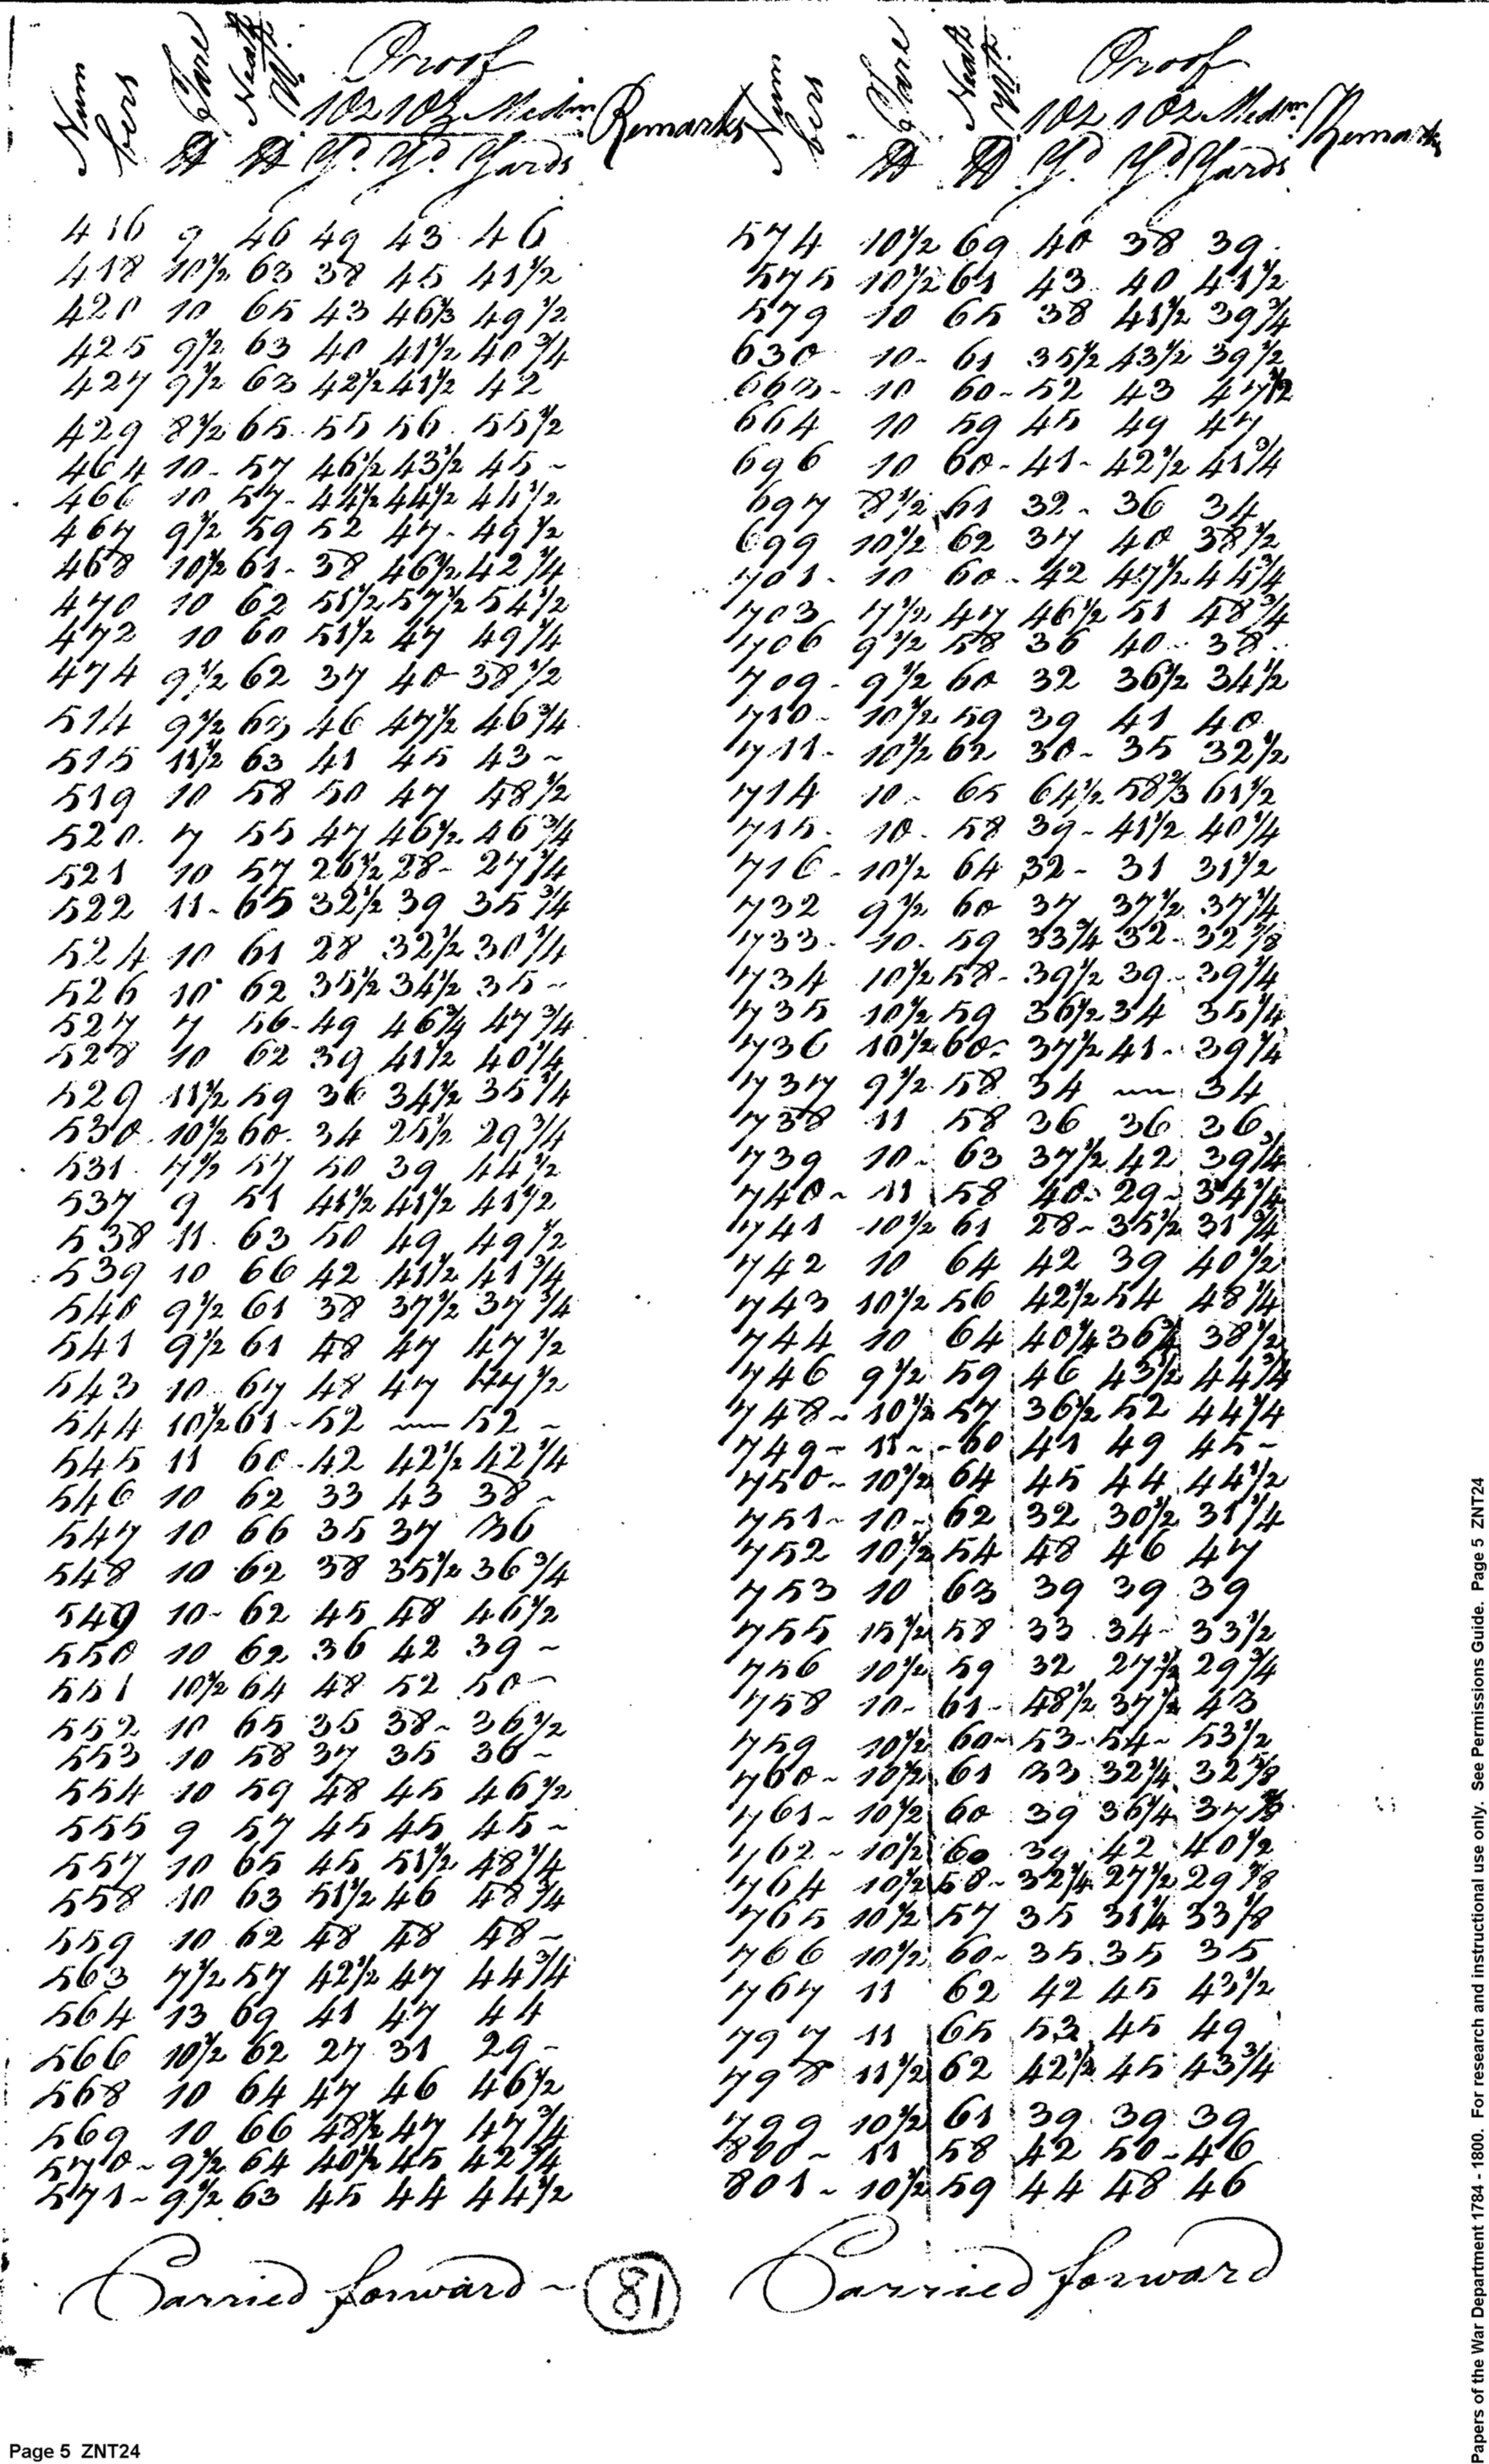 Numbers Tare Neat Wt. Proof 1 oz 1 oz Medm. Remarks
lb lb Yd. Yd. Yards
416 9 46 49 43 46
418 10½ 63 38 45 41½
420 10 65 43 46⅓ 49½
425 9½ 63 40 41½ 40¾
427 9½ 63 42½ 41½ 42
429 8½ 65 55 56 55½
464 10 - 57 46½ 43½ 45 ~
466 10 57 - 44½ 44½ 44½
467 9½ 59 52 47 - 49½
468 10½ 61 - 38 46½ 42¼
470 10 62 51½ 57½ 54½
472 10 60 51½ 47 49¼
474 9½ 62 37 40 - 38½
514 9½ 63 46 47½ 46¾
515 11½ 63 41 45 43 ~
519 10 58 50 47 48½
520 7 55 47 46½ 46¾
521 10 57 26½ 28 - 27¼
522 11 - 65 32½ 39 35¾
524 10 61 28 32½ 30¼
526 10 62 35½ 34½ 35 -
527 7 56 - 49 46¾ 47¾
528 10 62 39 41½ 40¼
529 11½ 59 36 34½ 35¼
530 10½ 60 34 25½ 29¾
531 7½ 57 50 39 44½
537 9 51 41½ 41½ 41½
538 11 63 50 49 49½
539 10 66 42 41½ 41¾
540 9½ 61 38 37½ 37¾
541 9½ 61 48 47 47½
543 10 67 48 47 47½
544 10½ 61 - 52 — 52 ~
545 11 60 - 42 42½ 42¼
546 10 62 33 43 38 ~
547 10 66 35 37 36
548 10 62 38 35½ 36¾
549 10 - 62 45 48 46½
550 10 62 36 42 39 ~
551 10½ 64 48 52 50 ~
552 10 65 35 38 - 36½
553 10 58 37 35 36 ~
554 10 59 48 45 46½
555 9 57 45 45 45 ~
557 10 65 45 51½ 48¼
558 10 63 51½ 46 48¾
559 10 62 48 48 48 ~
563 7½ 57 42½ 47 44¾
564 13 69 41 47 44
566 10½ 62 27 31 29 -
568 10 64 47 46 46½
569 10 66 48½ 47 47¾
570 ~ 9½ 64 40½ 45 42¾
571 ~ 9½ 63 45 44 44½
Carried forward ~
81
Numbers Tare Neat Wt. Proof 1 oz 1 oz Medm. Remarks
lb lb Yd. Yd. Yards
574 10½ 69 40 38 39
575 10½ 61 43 40 41½
579 10 65 38 41½ 39¾
630 10 - 61 35½ 43½ 39½
663 - 10 60 - 52 43 47½
664 10 59 45 49 47
696 10 60 - 41 - 42½ 41¾
697 8½ 61 32 - 36 34
699 10½ 62 37 40 38½
701 - 10 60 - 42 47½ 44¾
703 7½ 47 46½ 51 48¾
706 9½ 58 36 40 38
709 - 9½ 60 32 36½ 34½
710 - 10½ 59 39 41 40
711 - 10½ 62 30 - 35 32½
714 10 - 65 64½ 58⅔ 61½
715 - 10 - 58 39 - 41½ 40¼
716 - 10½ 64 32 - 31 31½
732 9½ 60 37 37½ 37¼
733 - 10 - 59 33¾ 32 - 32⅞
734 10½ 58 - 39½ 39 - 39¼
735 10½ 59 36½ 34 35¼
736 10½ 60 - 37½ 41 - 39¼
737 9½ 58 34 — 34
738 11 58 36 36 36
739 10 - 63 37½ 42 39¾
740 ~ 11 58 40 29 - 34¼
741 10½ 61 28 - 35½ 31¾
742 10 64 42 39 40½
743 10½ 56 42½ 54 48¼
744 10 64 40¼ 36¾ 38½
746 9½ 59 46 43½ 44¾
748 ~ 10½ 57 36½ 52 44¼
749 ~ 11 ~ - 60 41 49 45 -
750 ~ 10½ 64 45 44 44½
751 ~ 10 - 62 32 30½ 31¼
752 10½ 54 48 46 47
753 10 63 39 39 39
755 15½ 58 33 34 - 33½
756 10½ 59 32 27½ 29¾
758 10 - 61 - 48½ 37½ 43
759 10½ 60 - 53 - 54 - 53½
760 ~ 10½ 61 33 32¼ 32⅝
761 ~ 10½ 60 39 36¼ 37⅝
762 ~ 10½ 60 39 42 40½
764 10½ 58 - 32¼ 27½ 29⅞
765 10½ 57 35 31¼ 33⅛
766 10½ 60 - 35 35 35
767 11 62 42 45 43½
797 11 65 53 45 49
798 11½ 62 42½ 45 43¾
799 10½ 61 39 39 39
800 ~ 11 58 42 50 - 46
801 ~ 10½ 59 44 48 46
Carried forward
Page 5 ZNT24
Papers of the War Department 1784 - 1800. For research and instructional use only. See Permissions Guide. Page 5 ZNT24